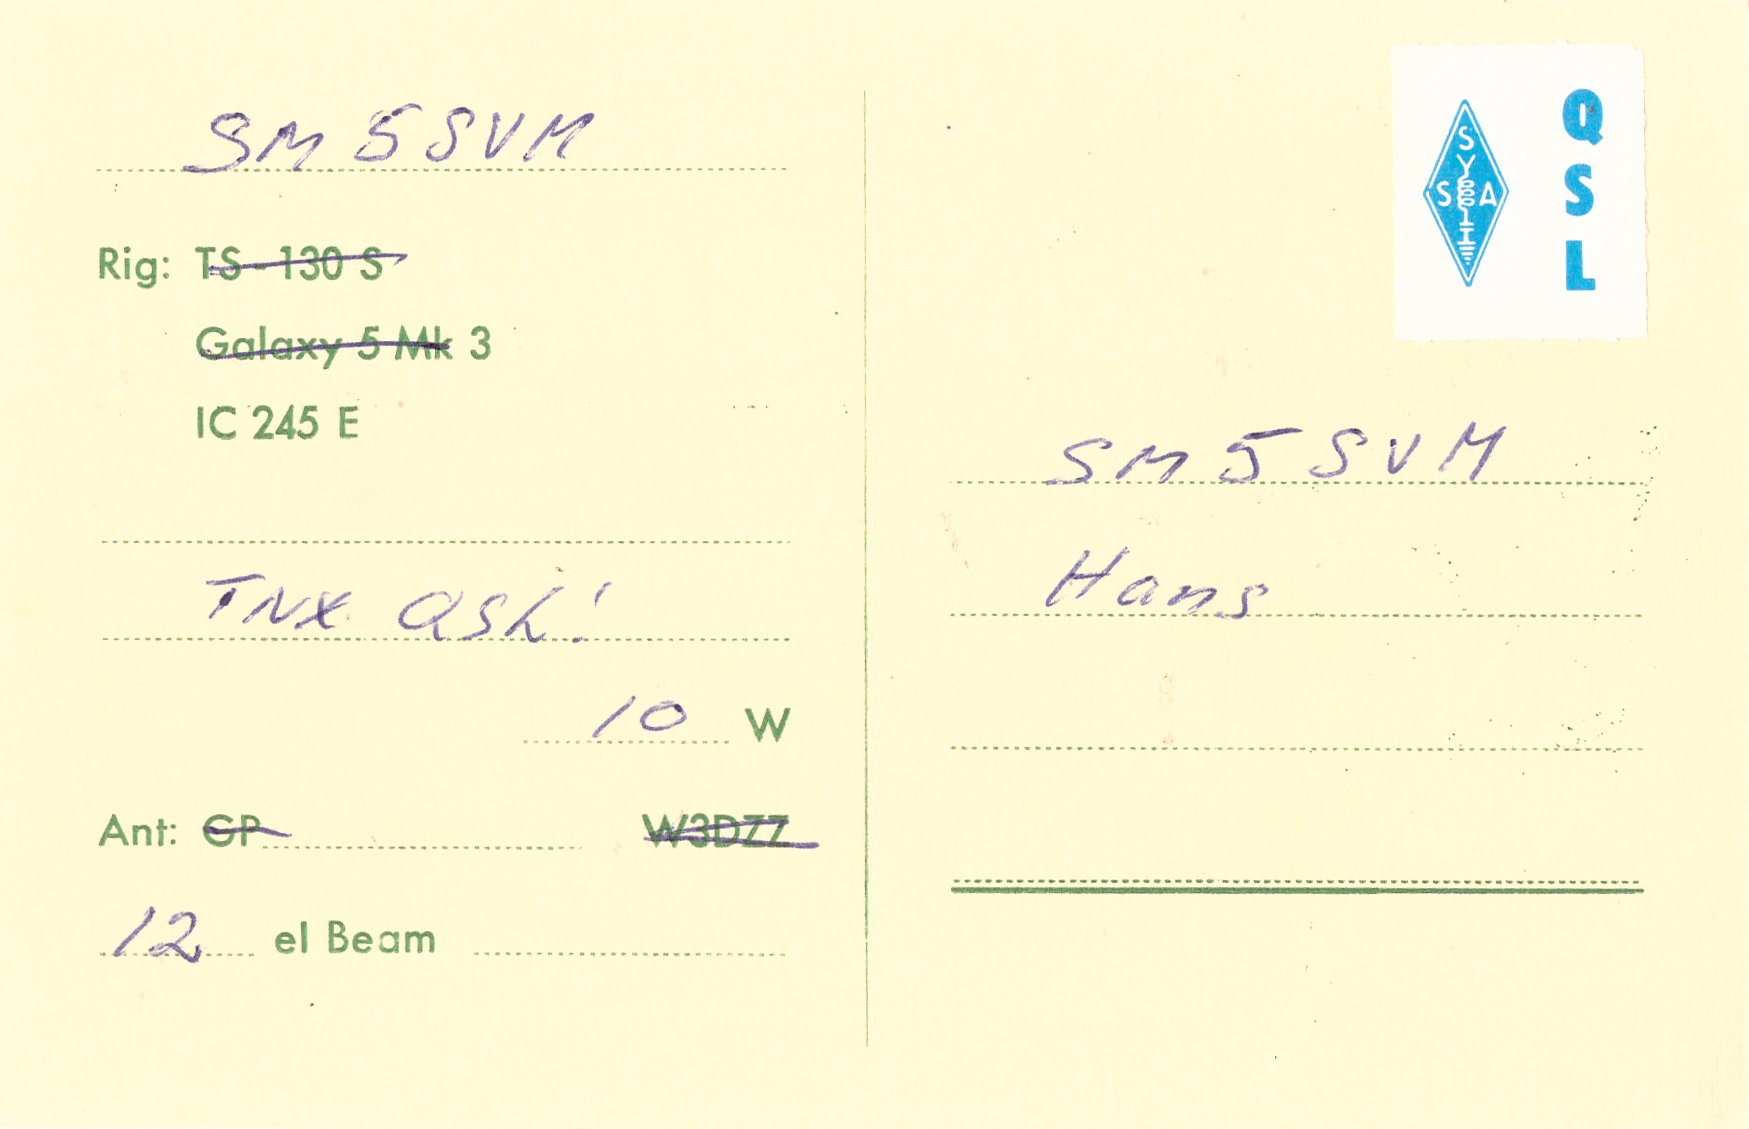 SM5SVM
Rig: TS-130 S
Galaxy 5 Mk 3
IC 245 E
TNX QSL!
10 W
Ant: GP W3DZZ
12 el Beam
QSL
SSA
SM5SVM
Hans